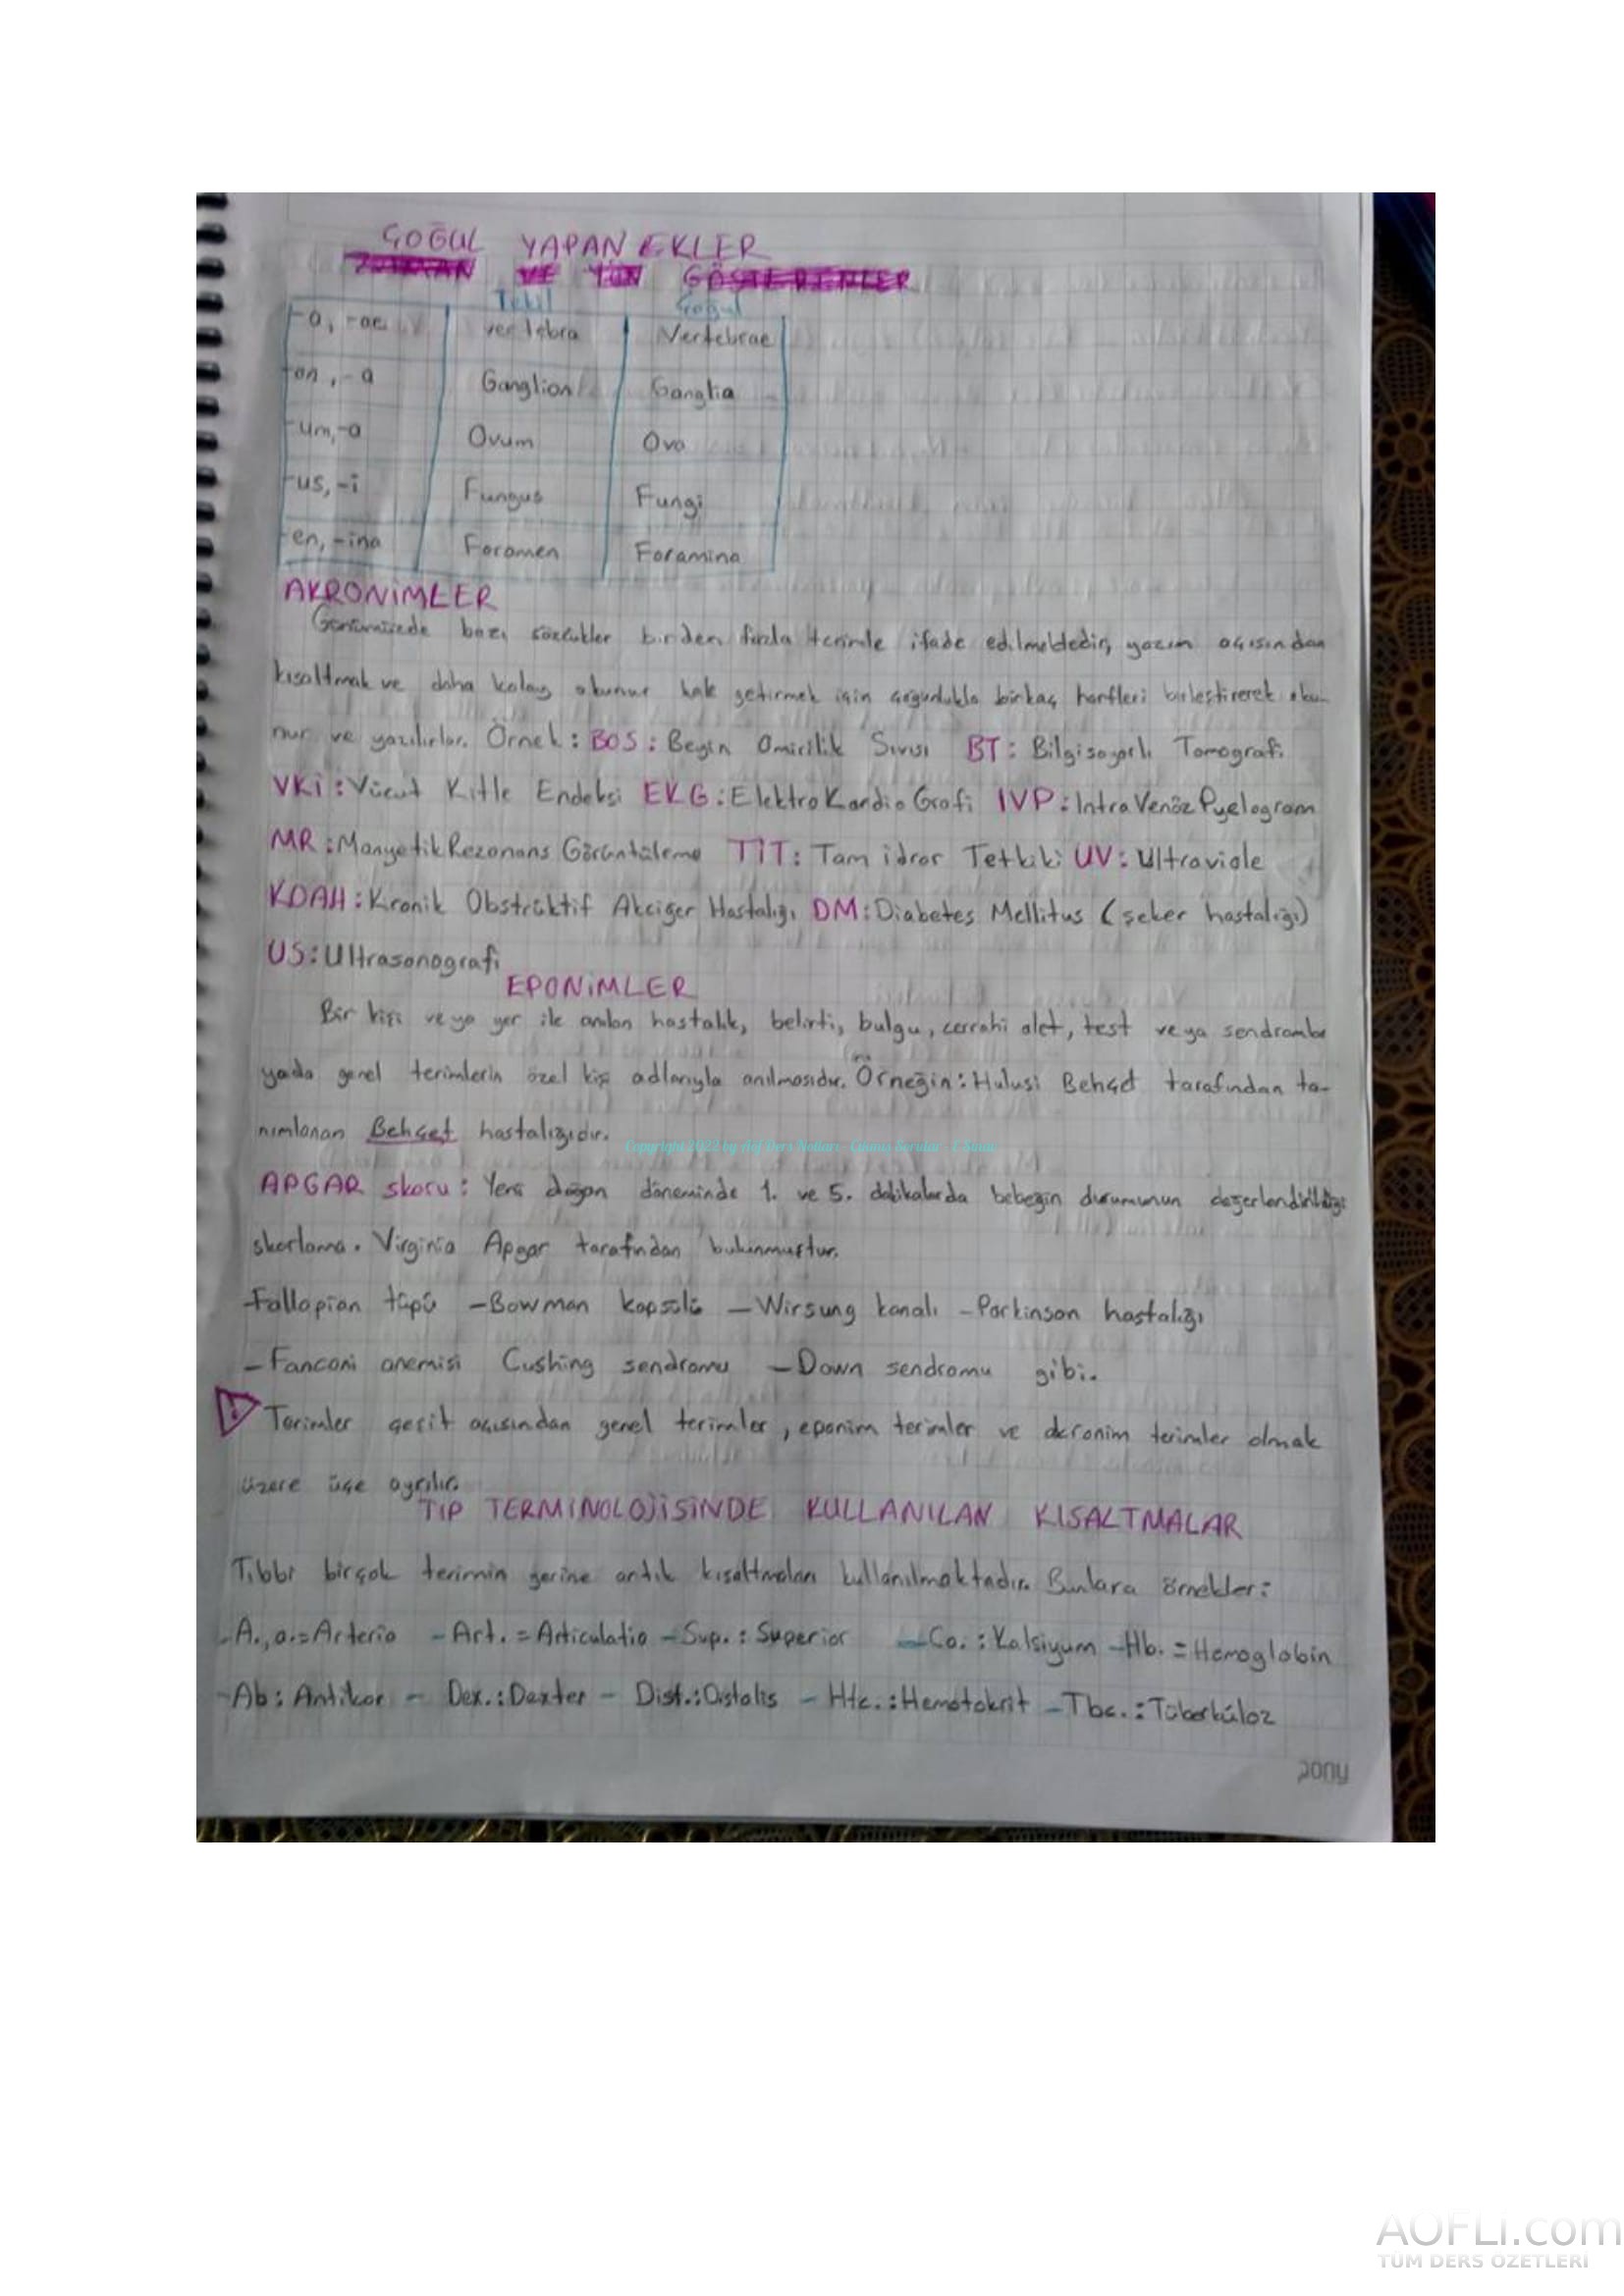 ÇOĞUL YAPAN EKLER
ZAMAN VE YÖN GÖSTERENLER
Tekil Çoğul
-a, -ae vertebra Vertebrae
-on, -a Ganglion Ganglia
-um, -a Ovum Ova
-us, -i Fungus Fungi
-en, -ina Foramen Foramina
AKRONİMLER
Günümüzde bazı sözcükler birden fazla terimle ifade edilmektedir, yazım açısından
kısaltmak ve daha kolay okunur hale getirmek için çoğunlukla birkaç harfleri birleştirerek oku-
nur ve yazılırlar. Örnek: BOS: Beyin Omirilik Sıvısı BT: Bilgisayarlı Tomografi
VKİ: Vücut Kitle Endeksi EKG: ElektroKardioGrafi IVP: IntraVenözPyelogram
MR: ManyetikRezonans Görüntüleme TİT: Tam idrar Tetkiki UV: Ultraviole
KOAH: Kronik Obstrüktif Akciğer Hastalığı DM: Diabetes Mellitus (şeker hastalığı)
US: Ultrasonografi
EPONİMLER
Bir kişi veya yer ile anılan hastalık, belirti, bulgu, cerrahi alet, test veya sendromlar
yada genel terimlerin özel kişi adlarıyla anılmasıdır. Örneğin: Hulusi Behçet tarafından ta-
nımlanan Behçet hastalığıdır.
Copyright 2022 by Aof Ders Notları
APGAR skoru: Yeni doğan döneminde 1. ve 5. dakikalarda bebeğin durumunun değerlendirildiği
skorlama. Virginia Apgar tarafından bulunmuştur.
-Fallopian tüpü -Bowman kapsülü -Wirsung kanalı -Parkinson hastalığı
-Fanconi anemisi Cushing sendromu -Down sendromu gibi.
! Terimler çeşit açısından genel terimler, eponim terimler ve akronim terimler olmak
üzere üçe ayrılır.
TIP TERMİNOLOJİSİNDE KULLANILAN KISALTMALAR
Tıbbi birçok terimin yerine artık kısaltmaları kullanılmaktadır. Bunlara örnekler:
-A., a.=Arteria -Art.=Articulatio -Sup.: Superior -Ca.: Kalsiyum -Hb.=Hemoglobin
-Ab: Antikor - Dex.: Dexter - Dist.: Distalis - Htc.: Hematokrit -Tbc.: Tüberküloz
pony
AOFLI.com
TÜM DERS ÖZETLERİ